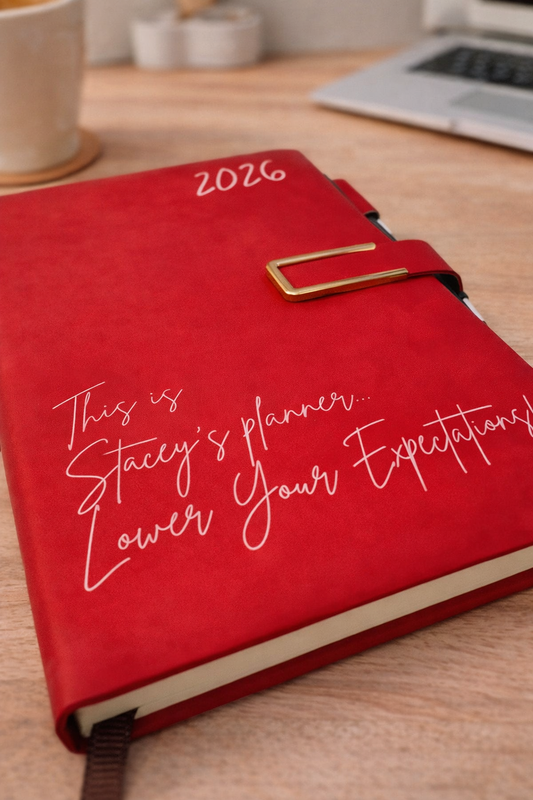 2026
This is
Stacey's planner...
Lower Your Expectations!